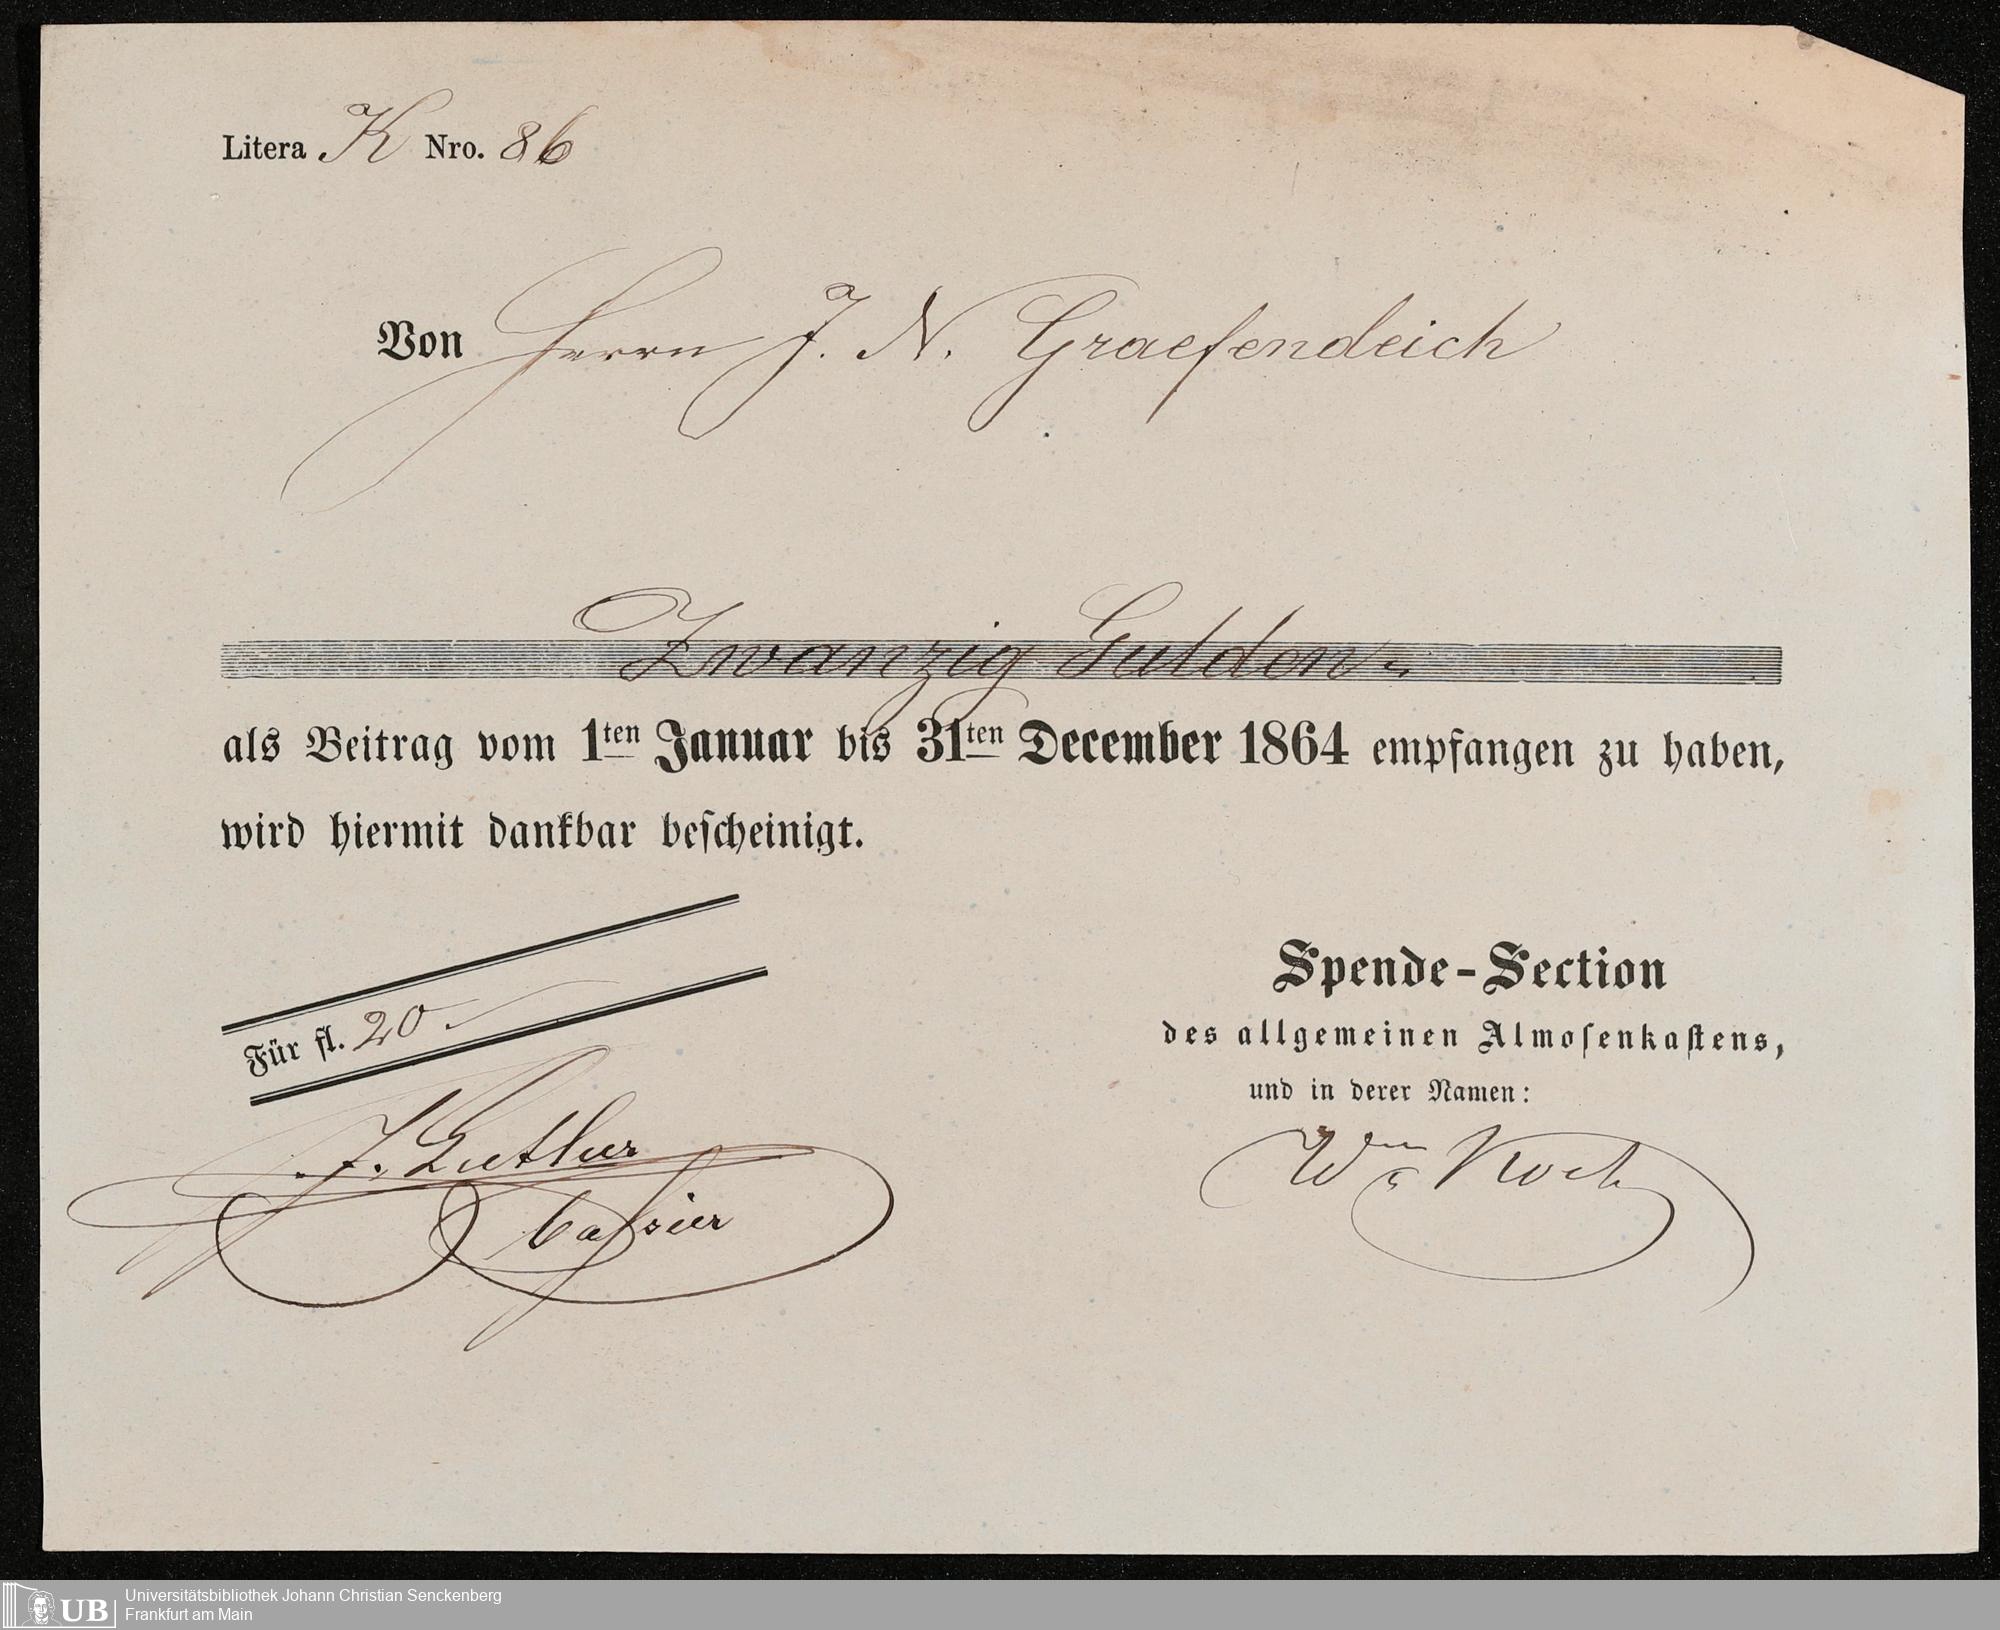 Litera K Nro. 86
Von Herrn J. N. Graefendeich
Zwanzig Gulden
als Beitrag vom 1ten Januar bis 31ten December 1864 empfangen zu haben,
wird hiermit dankbar bescheinigt.
Für fl. 20
Spende-Section
des allgemeinen Almosenkastens,
und in derer Namen:
Wm Koch
Cassier
Universitätsbibliothek Johann Christian Senckenberg
Frankfurt am Main
UB